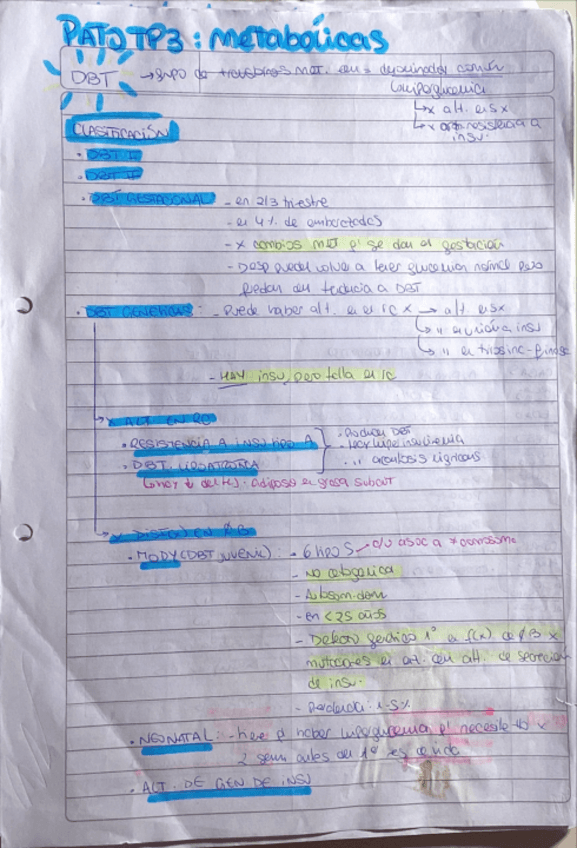 PATO TP3: metabólicas
DBT → grupo de trastornos met. con > denominador común
hiperglucemia
↳ x alt. en sx
↳ x resistencia a
insu.
CLASIFICACIÓN
• DBT I
• DBT II
• DBT GESTACIONAL - en 2/3 trimestre
- en 4% de embarazadas
- x cambios met q' se dan en gestación
- Desp pueden volver a tener glucemia normal pero
quedan en tendencia a DBT
• DBT GENÉTICAS: - Puede haber alt. en el rc x → alt. en sx
↳ " en unión a insu
↳ " en tirosinc-quinasa
- HAY insu, pero falla el rc
x ALT EN RC
• RESISTENCIA A INSU TIPO A
• DBT. LIPOATRÓFICA
- Producen DBT
- hay hiperinsulinemia
- " acantosis nigricans
↳ hay ↓ del tej. adiposo en grasa subcut
x DISFC EN β
• MODY (DBT JUVENIL): • 6 tipos → c/u asoc a ≠ cromosoma
- No cetogénica
- Autosom. dom
- en <25 años
- Defecto genético 1° en f(x) de β x
mutaciones en alt. de secreción
de insu.
- Prevalencia: 1-5%
• NEONATAL: - tiene q' haber hiperglucemia q' necesite tto x
2 sem antes de 1° de vida
• ALT. DE GEN DE INSU